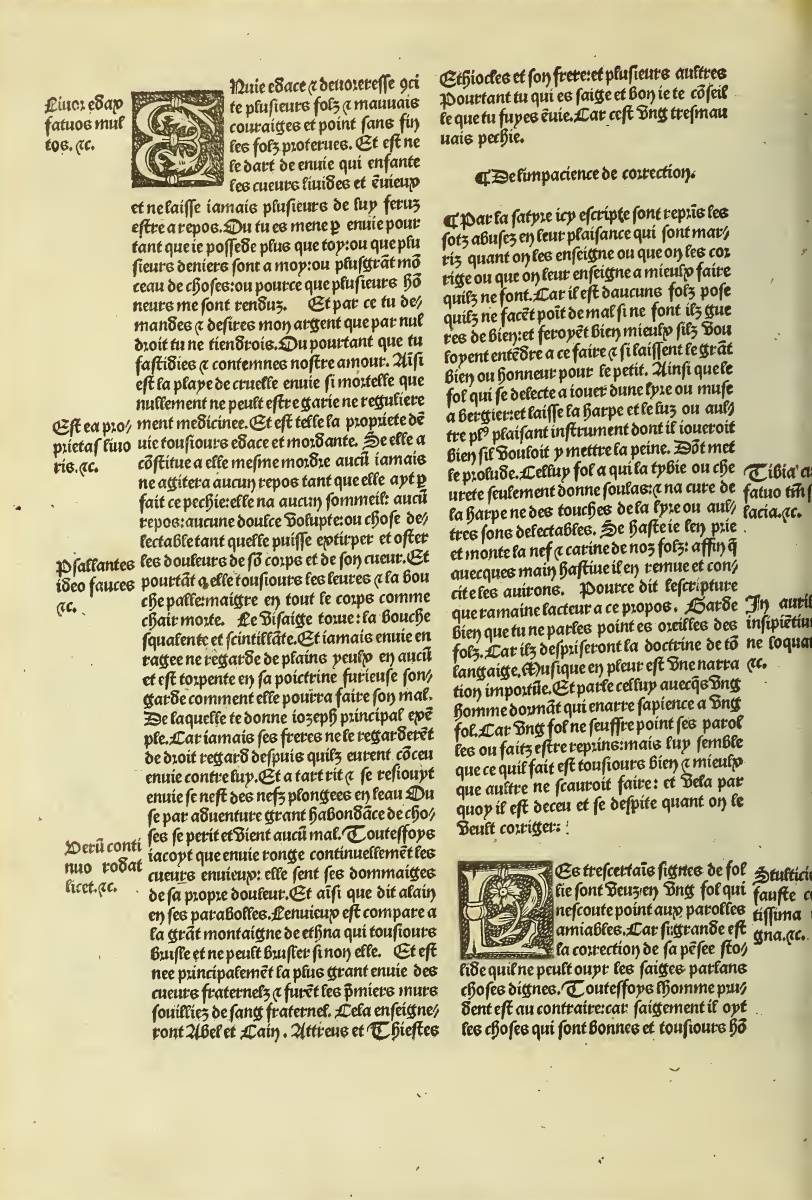 Liuor edax
fatuos mul
tos. ⁊c.
ENuie edace ⁊ deuoreresse 9ci
te plusieurs folz ⁊ mauuais
couraiges et point sans fin
les folz proterues. Et est ne
le dart de enuie qui enfante
les cueurs liuides et ẽuieux
et ne laisse iamais plusieurs de luy feruz
estre a repos. Ou tu es mene ꝑ enuie pour
tant que ie possede plus que toy: ou que plu
sieurs deniers sont a moy: ou plusgrãt mõ
ceau de choses: ou pource que plusieurs hõ
neurs me sont renduz. Et par ce tu de/
mandes ⁊ desires mon argent que par nul
droit tu ne tiendrois. Ou pourtant que tu
fastidies ⁊ contemnes nostre amour. Aĩsi
est la playe de cruelle enuie si mortelle que
nullement ne peult estre garie ne reguliere
Est ea pro/
prietas liuo
ris. ⁊c.
ment medicinee. Et est telle la propriete dẽ
uie tousiours edace et mordante. Se elle a
cõstitue a elle mesme mordre aucũ iamais
ne agitera aucun repos tant que elle ayt ꝑ
fait ce pechie: elle na aucun sommeil: aucũ
repos: aucune doulce volupte: ou chose de/
lectable tant quelle puisse extirper et oster
Psallantes
ideo fauces
⁊c.
les douleurs de sõ corps et de son cueur. Et
pourtãt a elle tousiours les leures ⁊ la bou
che palle: maigre en tout le corps comme
chair morte. Le visaige torue: la bouche
squalente et scintillãte. Et iamais enuie en
ragee ne regarde de plains yeulx en aucũ
et est torpente en sa poictrine furieuse son/
garde comment elle pourra faire son mal.
De laquelle te donne ioseph principal exẽ
ple. Car iamais ses freres ne le regarderẽt
de droit regard despuis quilz eurent cõceu
enuie contre luy. Et a tart rit ⁊ se resiouyt
enuie se nest des nefz plongees en leau Ou
se par aduenture grant habondãce de cho/
ses se perit et vient aucũ mal. Toutesfoys
Verũ conti
nuo rodat
licet. ⁊c.
iacoyt que enuie ronge continuellemẽt les
cueurs enuieux: elle sent ses dommaiges
de sa propre douleur. Et aĩsi que dit alain
en ses parabolles. Lenuieux est compare a
la grãt montaigne de ethna qui tousiours
brusle et ne peult brusler si non elle. Et est
nee principalemẽt la plus grant enuie des
cueurs fraternelz ⁊ furẽt les p̃miers murs
souilliez de sang fraternel. Cela enseigne/
ront Abel et Cain. Attreus et Thiestes
Ethiocles et son frere: et plusieurs aultres
Pourtant tu qui es saige et bon ie te cõseil
le que tu fuyes ẽuie. Car cest vng tresmau
uais pechie.
¶De limpacience de correction.
¶Par la satyre icy escripte sont repris les
sotz abusez en leur plaisance qui sont mar/
riz quant on les enseigne ou que on les cor
rige ou que on leur enseigne a mieulx faire
quilz ne font. Car il est daucuns folz pose
quilz ne facẽt poĩt de mal si ne font ilz gue
res de bien: et feroyẽt bien mieulx silz vou
loyent entẽdre a ce faire ⁊ si laissent le grãt
bien ou honneur pour le petit. Ainsi que le
fol qui se delecte a iouer dune lyre ou muse
a bergier: et laisse la harpe et le luz ou aul/
tre plꝰ plaisant instrument dont il ioueroit
bien sil vouloit y mettre la peine. Dõt met
le prolude. Celluy fol a qui la tybie ou che
urete seulement donne soulas: ⁊ na cure de
la harpe ne des touches de la lyre ou aul/
tres sons delectables. Se haste ie len prie
et monte la nef ⁊ carine de noz folz: affin q̃
auecques main hastiue il en remue et con/
cite les auirons. Pource dit lescripture
que ramaine lacteur a ce propos. Garde
bien que tu ne parles point es oreilles des
folz. Car ilz despriseront la doctrine de tõ
langaige. Musique en pleur est vne narra
tion importũe. Et parle celluy auecq̃s vng
homme dormãt qui enarre sapience a vng
fol. Car vng fol ne seuffre point ses parol
les ou faitz estre reprins: mais luy semble
que ce quil fait est tousiours bien ⁊ mieulx
que aultre ne scauroit faire: et vela par
quoy il est deceu et se despite quant on le
veult corriger:
Tibia
fatuo
lacia. ⁊c.
In
ne
⁊c.
LEs trescertaĩs signes de fol
lie sont veuz en vng fol qui
nescoute point aux parolles
amiables. Car si grande est
la correction de sa pẽsee sto/
lide quil ne peult ouyr les saiges parlans
choses dignes. Toutesfoys lhomme pru/
dent est au contraire: car saigement il oyt
les choses qui sont bonnes et tousiours hõ
fauste
tissima
gna. ⁊c.